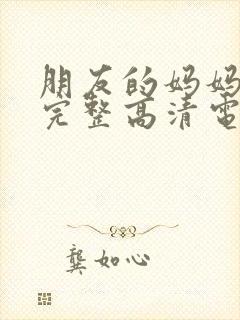 朋友的妈妈
完整高清電
龔如心